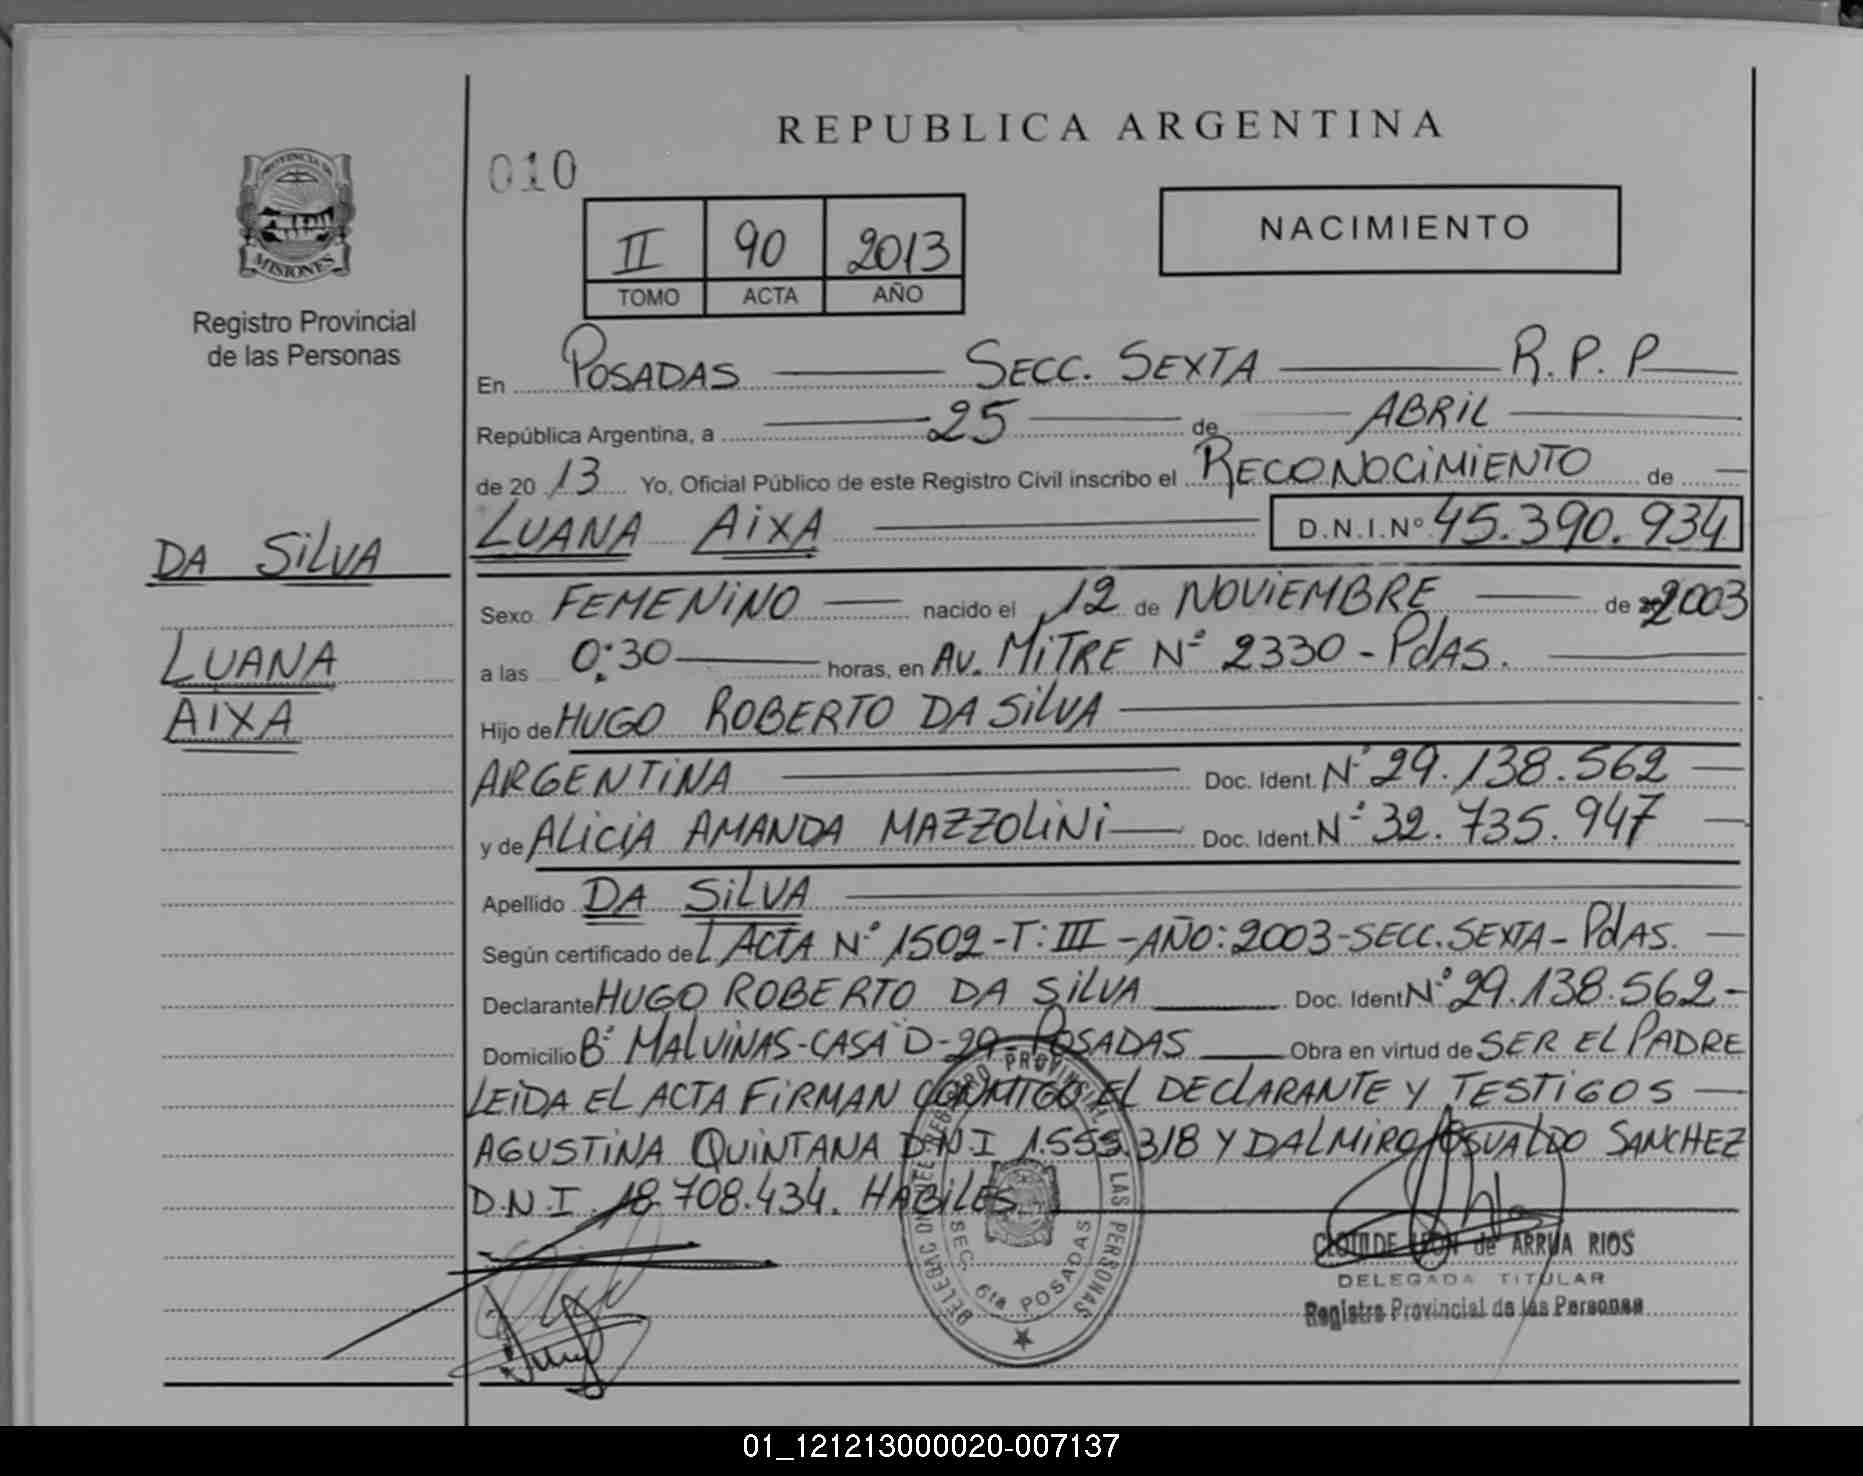 REPUBLICA ARGENTINA
010
PROVINCIA DE
MISIONES
Registro Provincial
de las Personas
II 90 2013
TOMO ACTA AÑO
NACIMIENTO
En POSADAS SECC. SEXTA R.P.P
República Argentina, a 25 de ABRIL
de 2013 Yo, Oficial Público de este Registro Civil inscribo el RECONOCIMIENTO de
LUANA AIXA D.N.I.Nº 45.390.934
DA SILVA
LUANA
AIXA
Sexo FEMENINO nacido el 12 de NOVIEMBRE de 2003
a las 0:30 horas, en AV. MITRE Nº 2330 - PdAS.
Hijo de HUGO ROBERTO DA SILVA
ARGENTINA Doc. Ident. Nº 29.138.562
y de ALICIA AMANDA MAZZOLINI Doc. Ident. Nº 32.735.947
Apellido DA SILVA
Según certificado del ACTA Nº 1502-T: III -AÑO: 2003-SECC. SEXTA - PdAS.
Declarante HUGO ROBERTO DA SILVA Doc. Ident Nº 29.138.562-
Domicilio Bº MALVINAS-CASA D-29- POSADAS Obra en virtud de SER EL PADRE
LEIDA EL ACTA FIRMAN CONMIGO EL DECLARANTE Y TESTIGOS
AGUSTINA QUINTANA D.N.I 1.555.318 Y DALMIRO OSVALDO SANCHEZ
D.N.I. 18.708.434. HABILES
REGISTRO PROVINCIAL DE LAS PERSONAS
SEC. 6ta POSADAS
CLOTILDE LEON de ARRUA RIOS
DELEGADA TITULAR
Registro Provincial de las Personas
01_121213000020-007137